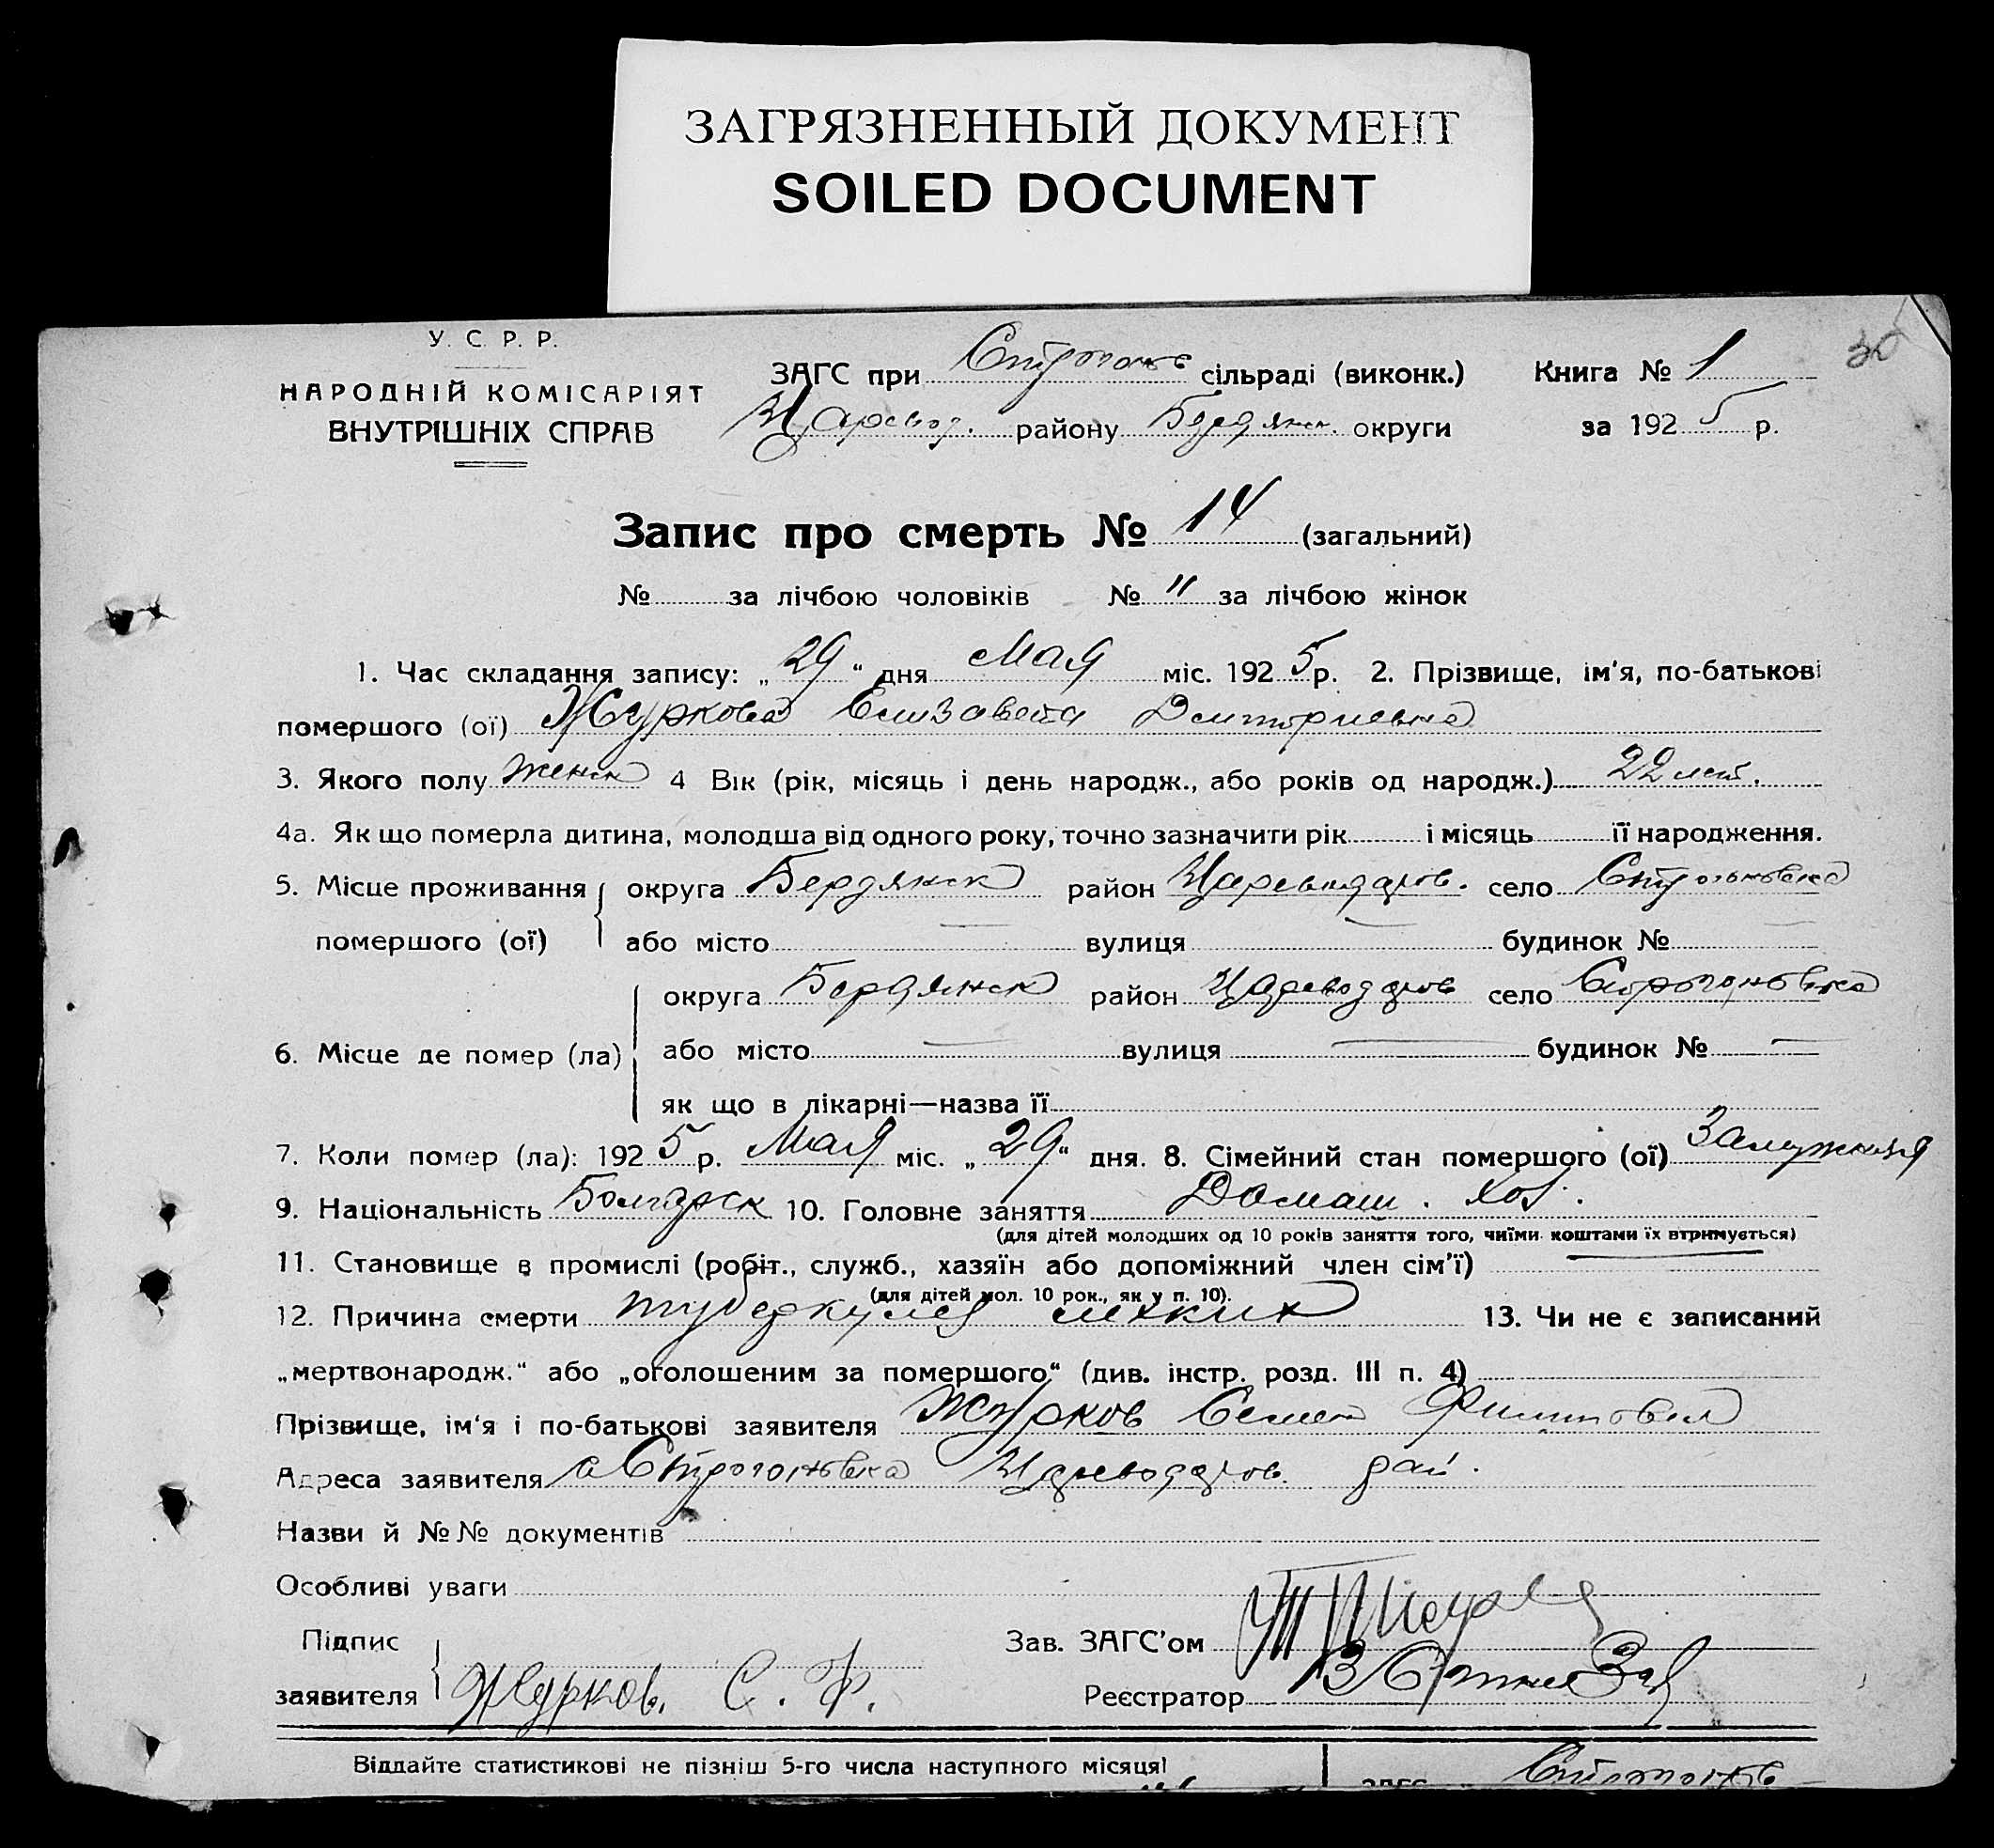 ЗАГРЯЗНЕННЫЙ ДОКУМЕНТ
SOILED DOCUMENT
У. С. Р. Р.
НАРОДНІЙ КОМІСАРІЯТ
ВНУТРІШНІХ СПРАВ
ЗАГС при Строгонов сільраді (виконк.) Книга № 1
30
Царевод. району Бердянск. округи за 1925 р.
Запис про смерть № 14 (загальний)
№ за лічбою чоловіків № 11 за лічбою жінок
1. Час складання запису: „29“ дня Мая міс. 1925 р. 2. Прізвище, ім'я, по-батькові
помершого (ої) Журкова Елизавета Дмитриевна
3. Якого полу женск 4 Вік (рік, місяць і день народж., або років од народж.) 22 лет.
4а. Як що померла дитина, молодша від одного року, точно зазначити рік і місяць її народження.
5. Місце проживання округа Бердянск район Цареводаров. село Строгоновка
помершого (ої) або місто — вулиця — будинок № —
округа Бердянск район Цареводаров село Строгоновка
6. Місце де помер (ла) або місто — вулиця — будинок № —
як що в лікарні—назва її
7. Коли помер (ла): 1925 р. Мая міс. „29“ дня. 8. Сімейний стан помершого (ої) Замужняя
9. Національність Болгарск 10. Головне заняття Домаш. хоз.
(для дітей молодших од 10 років заняття того, чиїми коштами їх втримується)
11. Становище в промислі (робіт., служб., хазяїн або допоміжний член сім'ї) —
(для дітей мол. 10 рок., як у п. 10).
12. Причина смерти туберкулез легких 13. Чи не є записаний
„мертвонародж.“ або „оголошеним за помершого“ (див. інстр. розд. III п. 4)
Прізвище, ім'я і по-батькові заявителя Журков Семен Филиппович
Адреса заявителя с Строгоновка Цареводаров. рай.
Назви й №№ документів
Особливі уваги
Підпис Зав. ЗАГС'ом
заявителя Журков. С. Ф. Реєстратор
Віддайте статистикові не пізніш 5-го числа наступного місяця!
ЗАГС Строгонов